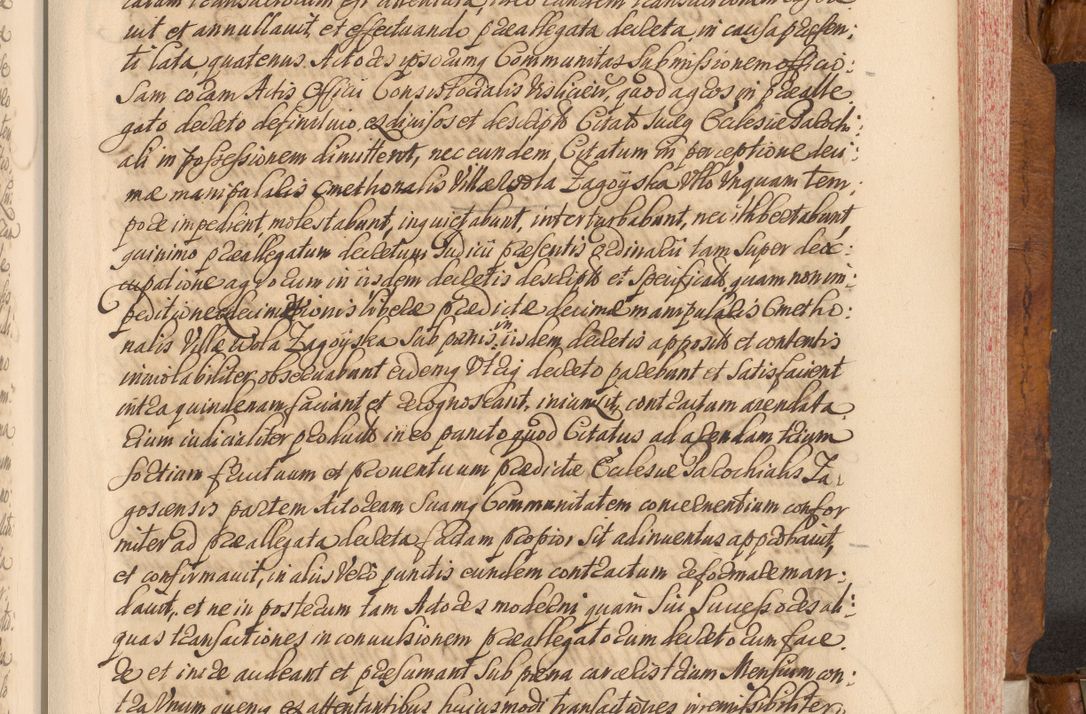 uit et annullauit et effectuando præallegata decreta, in causa præsen:
ti lata, quatenus Actores ipsorumq Communitas Submissionem officio:
sam coram Actis Officii Consistorialis Vislicien, quod agros in præalle
gato decreto definitiuo, expressos et descriptos Citato suæq Ecclesiæ Parochi
ali in possessionem dimittent, nec eundem Citatum in perceptione deci
mæ manipularis Cmethonalis Villæ Wola Zagoyska Vllo Vnquam tem
pore impedient, molestabunt, inquietabunt, interturbabunt, nec
quinimo præallegatum decretum Iudicii præsentis Ordinarii tam super
agrorum in iisdem decretis descriptos et specificatos, quam non im
peditione liberæ prædictæ decimæ manipularis Cmetho:
nalis Villæ Wola Zagoyska sub pænis, in iisdem decretis appositis et contentis
inuiolabiliter obseruabunt eidemq Vtriq decreto parebunt et satisfacient
intra quindenam faciant et recognoscant, iniunxit, contractum arendata
rium iudicialiter productum in eo puncto quod Citatus ad arendam trium
sortium fructuum et prouentuum prædictæ Ecclesiæ Parochialis Za
gosciensis partem Actoream suamq Communitatem concernentium confor
miter ad præallegata decreta factam propior sit adinuentus approbauit,
et confirmauit, in aliis Vero punctis eundem contractum reformare man:
dauit, et ne in posterum tam Actores moderni quam sui Successores ali:
quas transactiones in conuulsionem præallegatorum decretorum face
re et inire audeant et præsumant sub pæna carceris trium Mensium con:
tra Vnumquemq ex attentantibus huiusmodi transactiones irremissibiliter